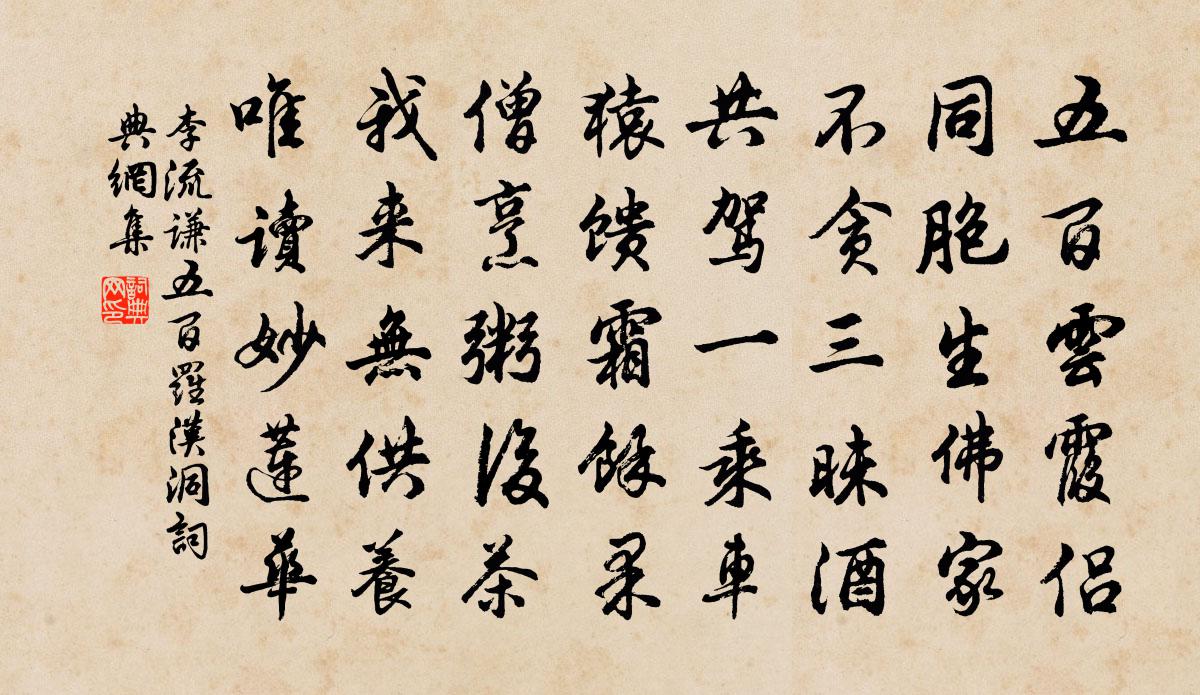 五百雲霞侶
同胞生佛家
不貪三昧酒
共駕一乘車
猿饋霜餘果
僧烹粥後茶
我来無供養
唯讀妙蓮華
李流謙五百羅漢洞詞
典網集
詞典網印